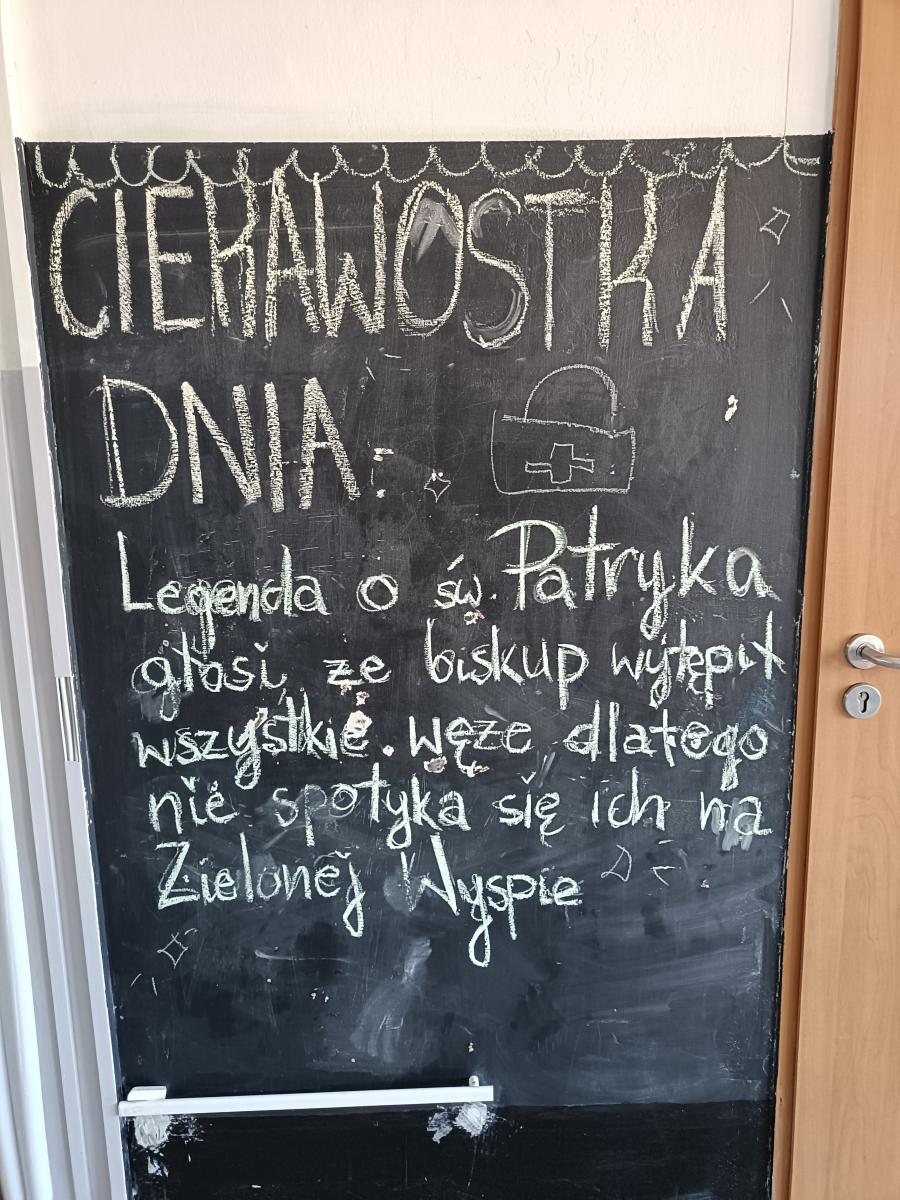 CIEKAWOSTKA
DNIA:
Legenda o św. Patryka
głosi, ze biskup wytępił
wszystkie węże dlatego
nie spotyka się ich na
Zielonej Wyspie